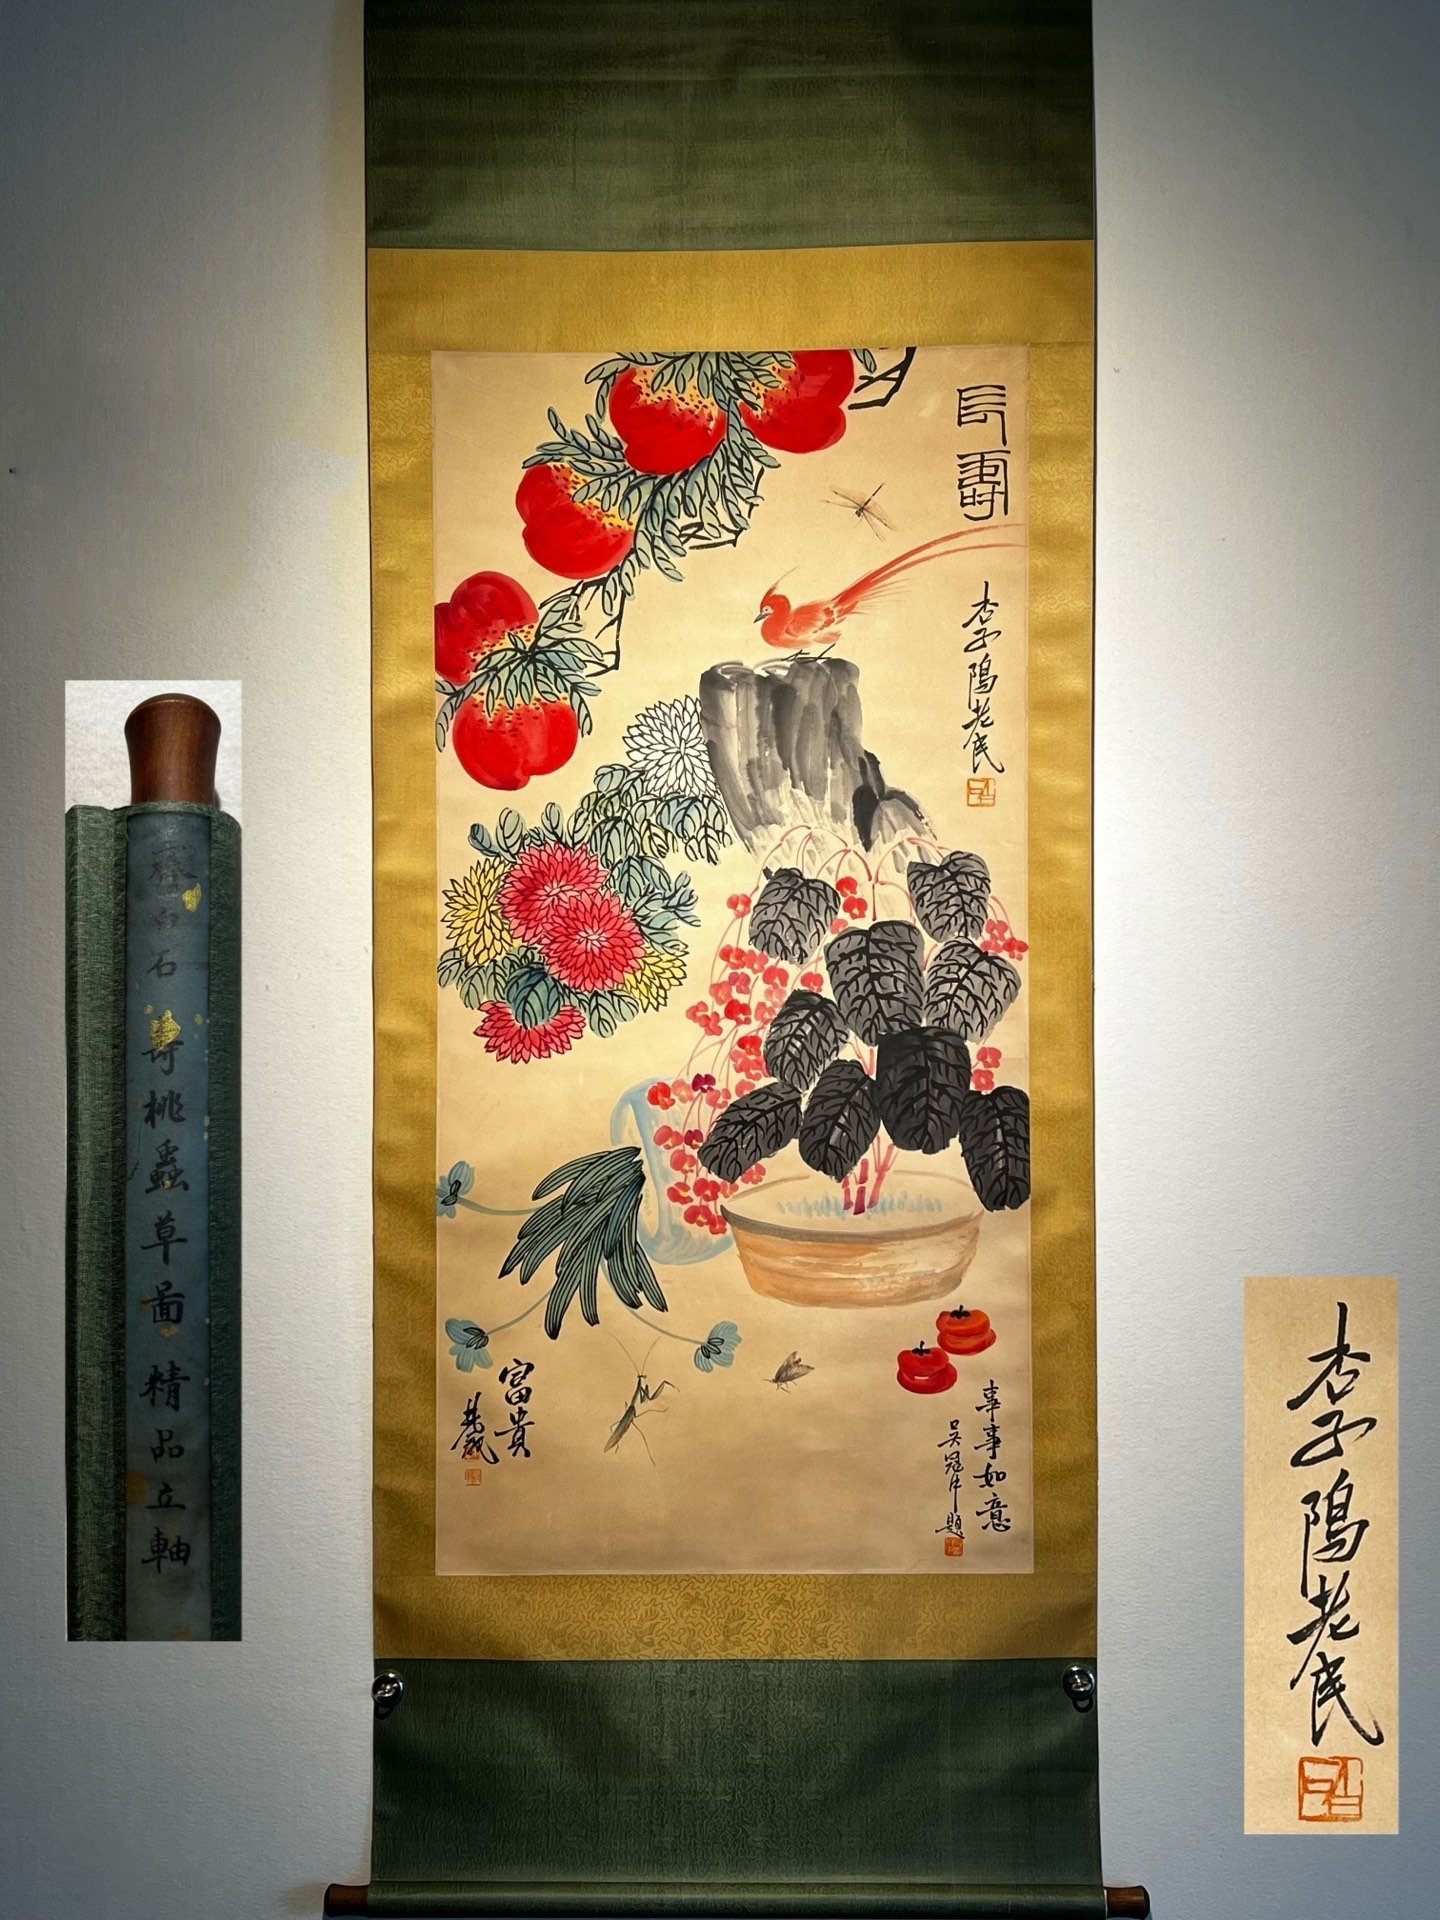 長壽
杏子隖老民
富貴
事事如意
吳冠中題
齋白石
奇桃蟲草圖
精品立軸
杏子隖老民